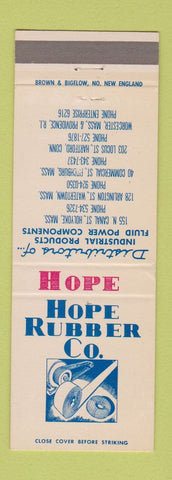 BROWN & BIGELOW, NO. NEW ENGLAND
HOPE
HOPE
RUBBER
CO.
CLOSE COVER BEFORE STRIKING
Distributors of...
INDUSTRIAL PRODUCTS
FLUID POWER COMPONENTS
155 N CANAL ST. HOLYOKE, MASS.
PHONE 534-7326
129 ARLINGTON ST. WATERTOWN, MASS.
PHONE 924-0350
40 COMMERCIAL ST. FITCHBURG, MASS.
PHONE 343-7437
203 LOCUST ST. HARTFORD, CONN.
PHONE 527-1876
WORCESTER, MASS. & PROVIDENCE, R.I.
PHONE ENTERPRISE 6216